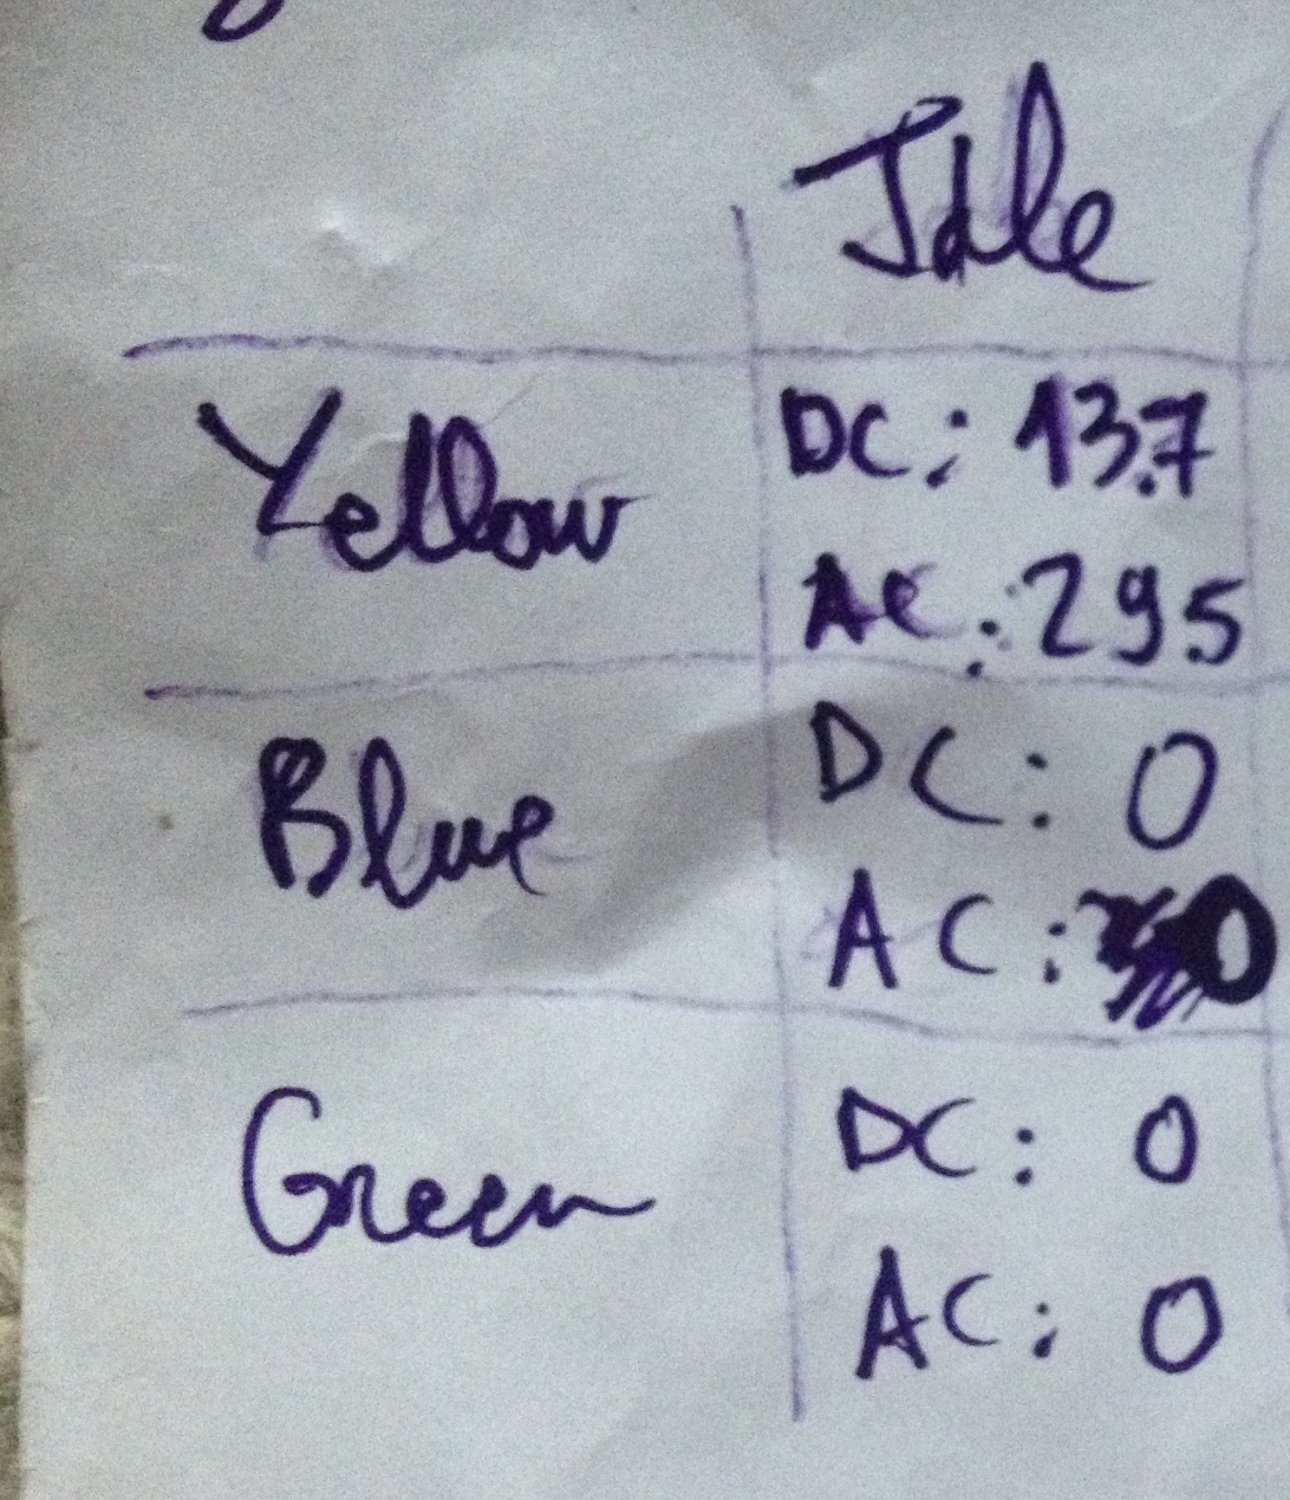 Idle
Yellow DC: 13.7
AC: 29.5
Blue DC: 0
AC: 0
Green DC: 0
AC: 0